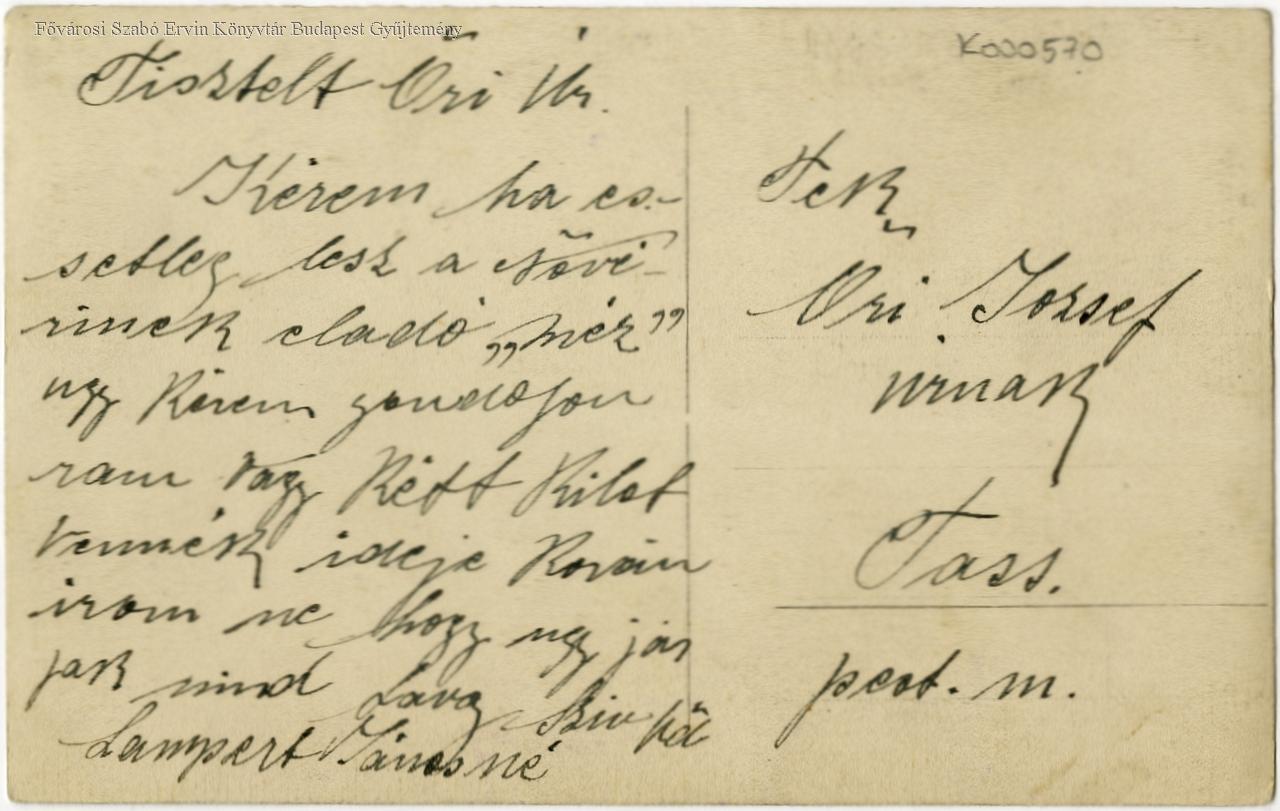 Fővárosi Szabó Ervin Könyvtár Budapest Gyűjtemény
K000570
Tisztelt Őri Úr.
Kérem ha es-
setleg lesz a Növé-
rinek eladó „méz”
ugy Kérem gondoljon
ram vagy Kétt Kilot
vennék ideje Korán
irom ne hogy ugy jár
jak mind Tavaj Sziv
Lampert Jánosné
Tek
Őri József
úrnak
Tass.
pest. m.